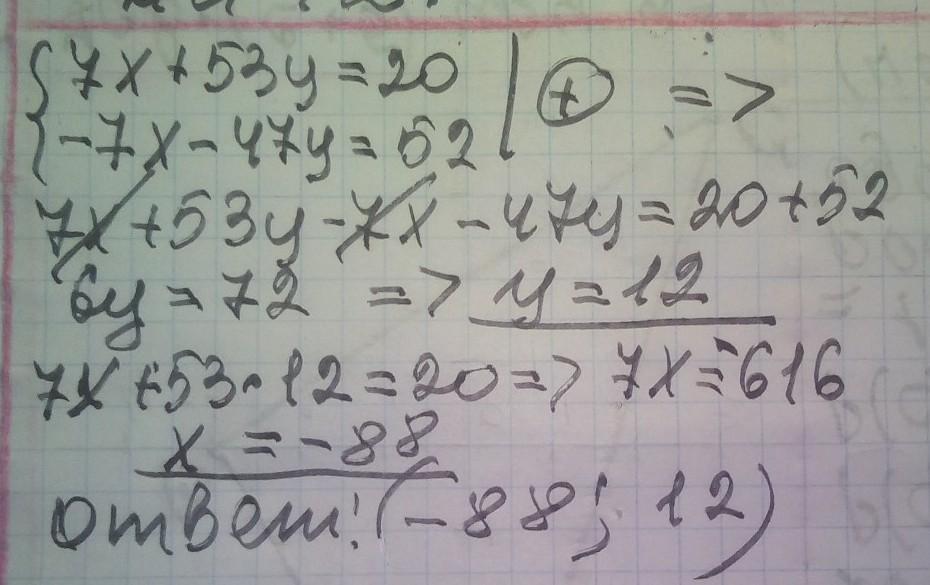 {7x+53y=20 | ⊕ =>
{-7x-47y=52
7x+53y-7x-47y=20+52
6y=72 => y=12
7x+53·12=20=> 7x=-616
x=-88
ответ: (-88; 12)